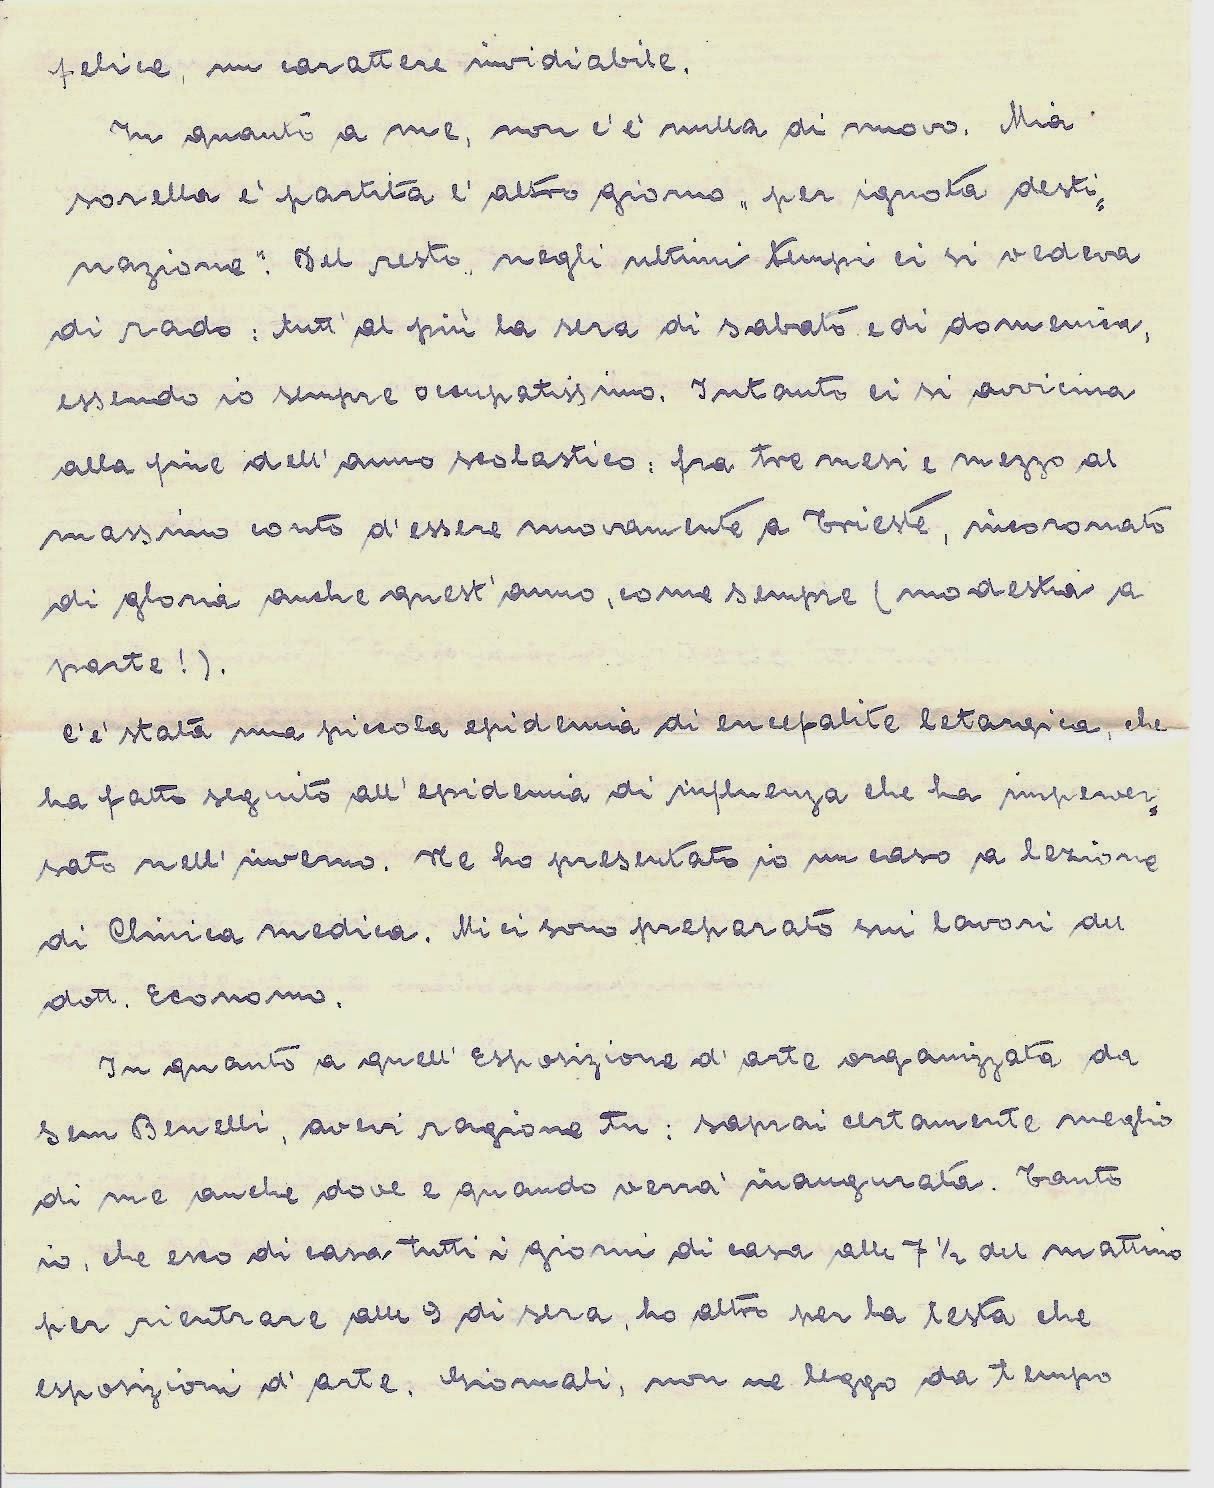 felice, un carattere invidiabile.
In quanto a me, non c'è nulla di nuovo. Mia
sorella è partita l'altro giorno „per ignota desti=
nazione". Del resto, negli ultimi tempi ci si vedeva
di rado: tutt'al più la sera di sabato e di domenica,
essendo io sempre occupatissimo. Intanto ci si avvicina
alla fine dell'anno scolastico: fra tre mesi e mezzo al
massimo conto d'essere nuovamente a Trieste, incoronato
di gloria anche quest'anno, come sempre (modestia a
parte!).
C'è stata una piccola epidemia di encefalite letargica, che
ha fatto seguito all'epidemia di influenza che ha imperver=
sato nell'inverno. Ne ho presentato io un caso a lezione
di Clinica medica. Mi ci sono preparato sui lavori del
dott. Economo.
In quanto a quell'Esposizione d'arte organizzata da
Sem Benelli, avevi ragione tu: saprai certamente meglio
di me anche dove e quando verrà inaugurata. Tanto
io, che esco di casa tutti i giorni di casa alle 7½ del mattino
per rientrare alle 9 di sera, ho altro per la testa che
esposizioni d'arte. Giornali, non ne leggo da tempo